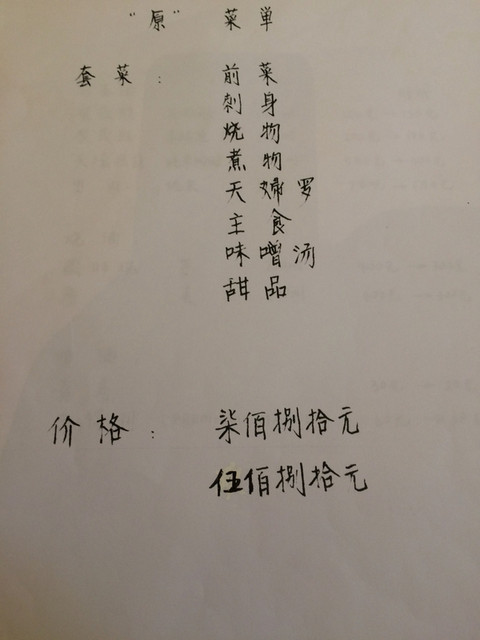 “原” 菜单
套菜： 前菜
刺身
烧物
煮物
天婦罗
主食
味噌汤
甜品
价格： 柒佰捌拾元
伍佰捌拾元